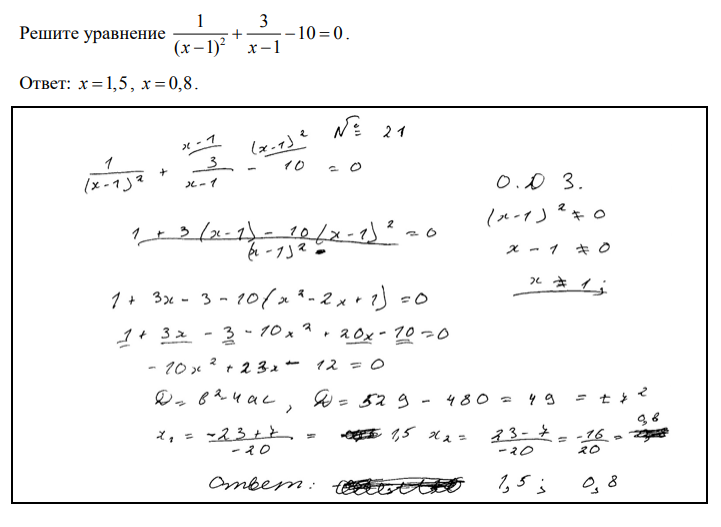 Решите уравнение 1/(x−1)² + 3/(x−1) − 10 = 0.
Ответ: x = 1,5, x = 0,8.
№ 21
1/(x-1)² + 3/(x-1) (x-1 - 10 (x-1)² = 0
О.Д З.
(x-1)² ≠ 0
x - 1 ≠ 0
x ≠ 1;
(1 + 3(x-1) - 10(x-1)²)/(x-1)² = 0
1 + 3x - 3 - 10(x² - 2x + 1) = 0
1 + 3x - 3 - 10x² + 20x - 10 = 0
- 10x² + 23x - 12 = 0
D = b² - 4ac, D = 529 - 480 = 49 = ±7²
x₁ = (-23+7)/-20 = 1,5 x₂ = (23-7)/-20 = -16/20 = 0,8
Ответ: 1,5; 0,8